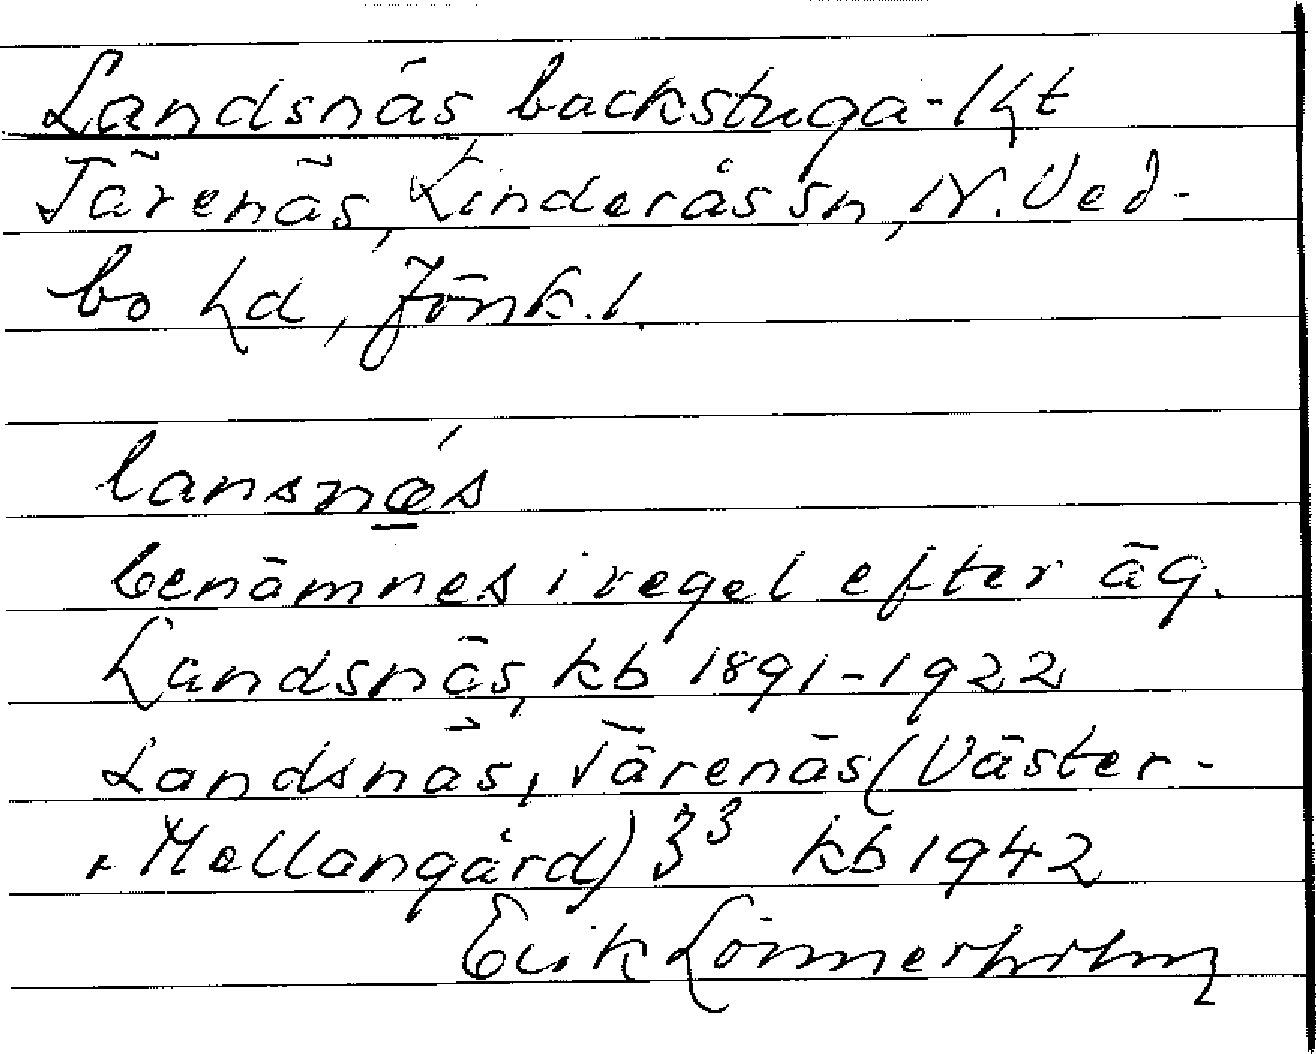 Landsnäs backstuga - lht
Tärenäs, Linderås sn, N. Ved-
bo hd, Jönk. l.
lansnæ´s
benämnes i regel efter äg.
Landsnäs, kb 1891-1922
Landsnäs, Tärenäs (Väster-
, Mellangård) 3³ kb 1942
Erik Lönnerholm